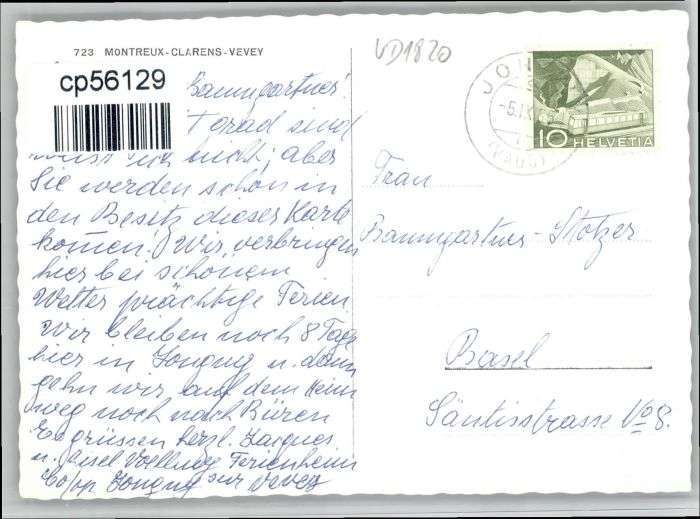 723 MONTREUX-CLARENS-VEVEY
VD1820
cp56129
Baumgartner!
grad sind
nicht; aber
Sie werden schon in
den Besitz dieser Karte
kom̄en! Wir verbringen
hier bei schönem
Wetter prächtige Ferien
Wir bleiben noch 8 Tage
hier in Jongny u. dann
gehn wir auf dem Heim
weg noch nach Büren
Es grüssen herzl. Jacques
u. Ferienheim
Co/op Jongny sur Vevey
JON
-5.IX
(VAUD)
10 HELVETIA
Frau
Baumgartner-Stotzer
Basel
Säntisstrasse No 8.